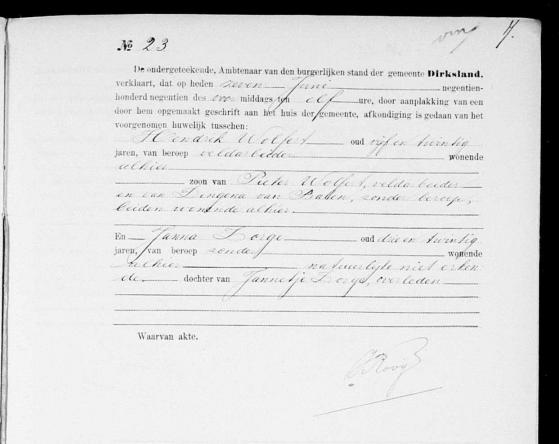 № 23
De ondergeteekende, Ambtenaar van den burgerlijken stand der gemeente Dirksland,
verklaart, dat op heden zeven Juni negentien-
honderd negentien des voormiddags ten elf ure, door aanplakking van een
door hem opgemaakt geschrift aan het huis der gemeente, afkondiging is gedaan van het
voorgenomen huwelijk tusschen:
Hendrik Wolfert oud vijf en twintig
jaren, van beroep veldarbeider wonende
alhier
zoon van Pieter Wolfert, veldarbeider
en van Dingena van Balen, zonder beroep,
beiden wonende alhier
En Janna Borge oud drie en twintig
jaren, van beroep zonder wonende
alhier natuurlyke niet erken
de dochter van Jannetje Borge, overleden
Waarvan akte.